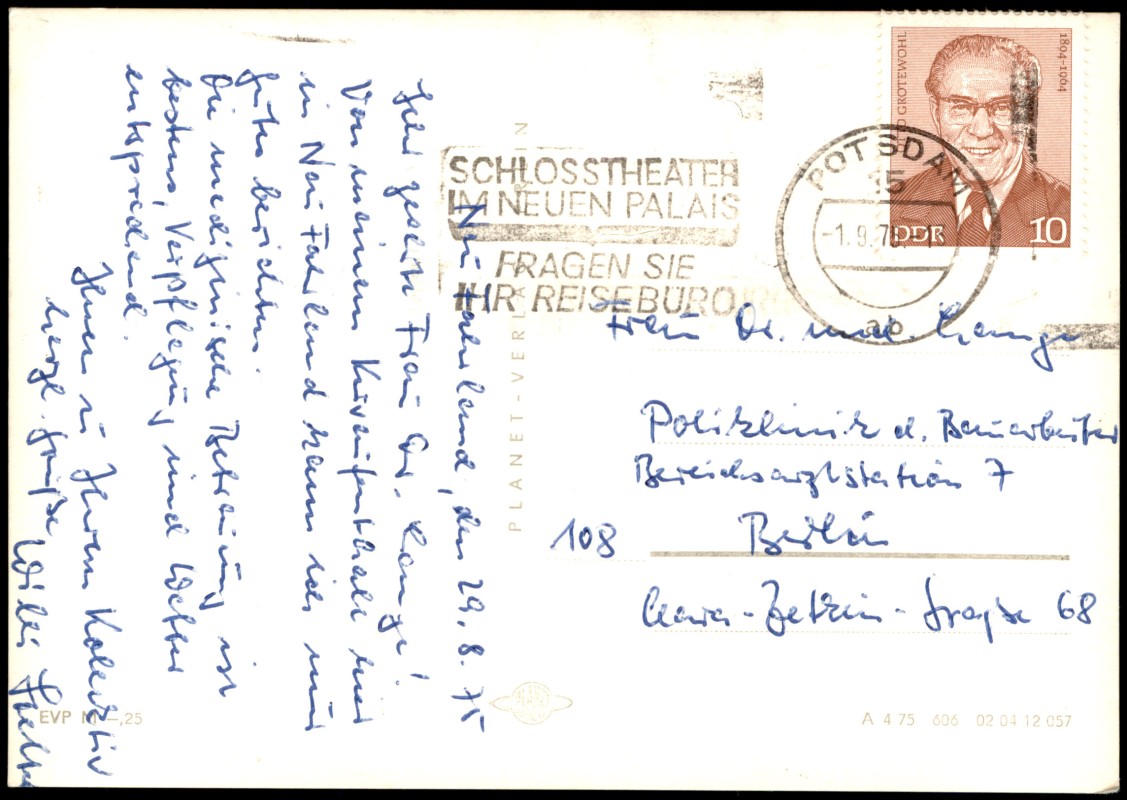 Neu Fahrland, den 29.8.75
Sehr geehrte Frau Dr. Lange!
Von meinem Kuraufenthalt hier
in Neu Fahrland kann ich nur
Gutes berichten.
Die medizinische Betreuung ist
bestens, Verpflegung und Wetter
entsprechend.
Ihnen u. Ihrem Kollektiv
herzl. Grüße
SCHLOSSTHEATER
IM NEUEN PALAIS
FRAGEN SIE
IHR REISEBÜRO
POTSDAM
15
-1.9.75
ab
OTTO GROTEWOHL
1894-1964
DDR
10
Frau Dr. med. Lange
Poliklinik d. Bauarbeiter
Bereichsarztstation 7
108 Berlin
Clara-Zetkin-Straße 68
PLANET-VERLAG BERLIN
PLANET
EVP M -,25
A 4 75 606 02 04 12 057